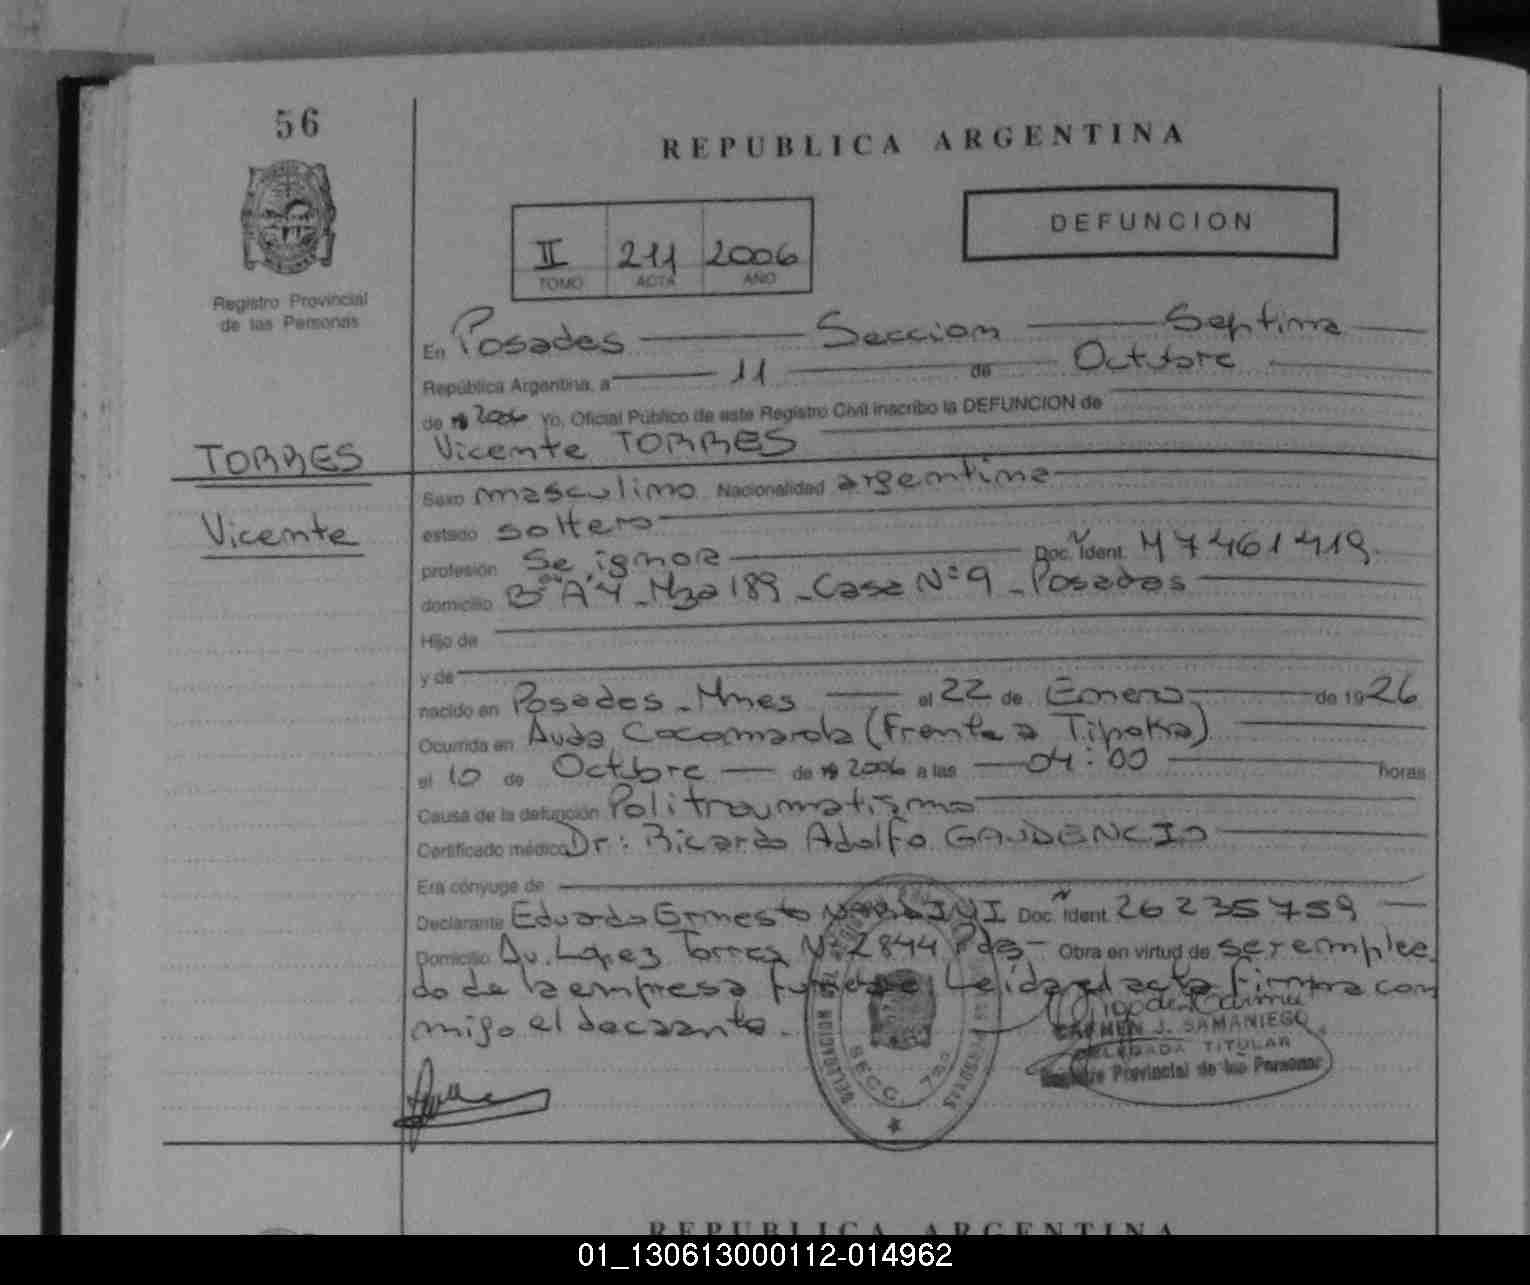 56
REPUBLICA ARGENTINA
DEFUNCION
II 211 2006
TOMO ACTA AÑO
Registro Provincial
de las Personas
En Posadas Seccion Septima
República Argentina, a 11 de Octubre
de 2006 Yo, Oficial Público de este Registro Civil inscribo la DEFUNCION de
TORRES
Vicente TORRES
Vicente
Sexo masculino Nacionalidad argentina
estado soltero
profesión Se ignora Doc. Ident. M 7461419
domicilio Bº A4 - Mza 189 - Casa Nº 9 - Posadas
Hijo de
y de
nacido en Posadas - Mnes el 22 de Enero de 1926
Ocurrida en Avda Cocomarola (Frente a Tipoka)
el 10 de Octubre de 2006 a las 04:00 horas
Causa de la defunción Politraumatismo
Certificado médico Dr: Ricardo Adolfo GAUDENCIO
Era cónyuge de
Declarante Eduardo Ernesto Doc. Ident. 26235759
Domicilio Av. Lopez Torres Nº 2844 Pdas - Obra en virtud de ser emplea
do de la empresa funebre Leida el acta firma con
migo el declarante.
DELEGACION
SECC. 7ma
CARMEN J. SAMANIEGO
DELEGADA TITULAR
Registro Provincial de las Personas
REPUBLICA ARGENTINA
01_130613000112-014962